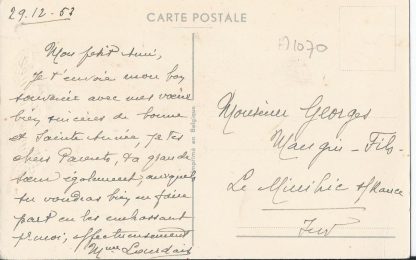 29.12-53
CARTE POSTALE
A1070
Mon petit Ami,
Je t'envoie mon bon
souvenir avec mes vœux
bien sincères de bonne
et Sainte Année, je tes
chers Parents, ta grande
sœur également, auxquels
tu voudras bien en faire
part en les embrassant
pr moi, affectueusement
Mme
Monsieur Georges
Mangin - Fils
Le Minihic s/Rance